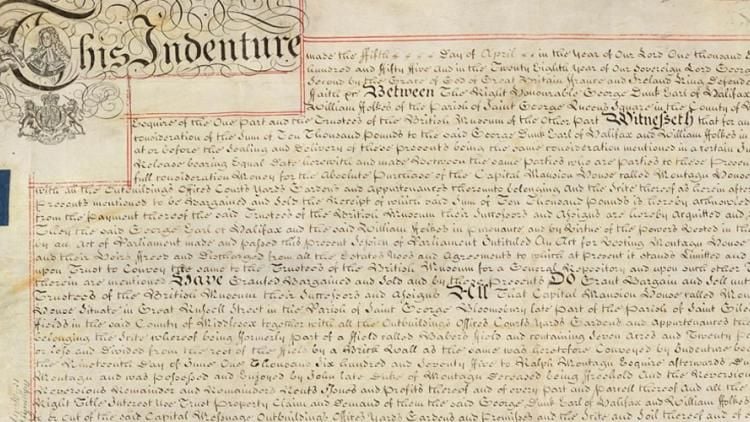 This Indenture
made the fifth Day of April in the Year of Our Lord One thousand
hundred and fifty five and in the Twenty Eighth Year of Our Sovereign Lord George
Second by the Grace of God of Great Britain France and Ireland King Defend
Faith &c Between The Right Honourable George Dunk Earl of Halifax
William ffolkes of the Parish of Saint George Queens Square in the County of
Esquire of the One Part and the Trustees of the British Museum of the Other Part Witnesseth that for an
consideration of the Sum of Ten Thousand Pounds to the said George Dunk Earl of Halifax and William ffolkes in
at or before the Sealing and Delivery of these presents being the same consideration mentioned in a certain In
Release bearing Equal Date herewith and made Between the same parties who are Parties to these Presen
full consideration Money for the Absolute Purchase of the Capital Mansion House called Montagu House
with all the Outbuildings Offices Courts Yards Gardens and appurtenances thereunto belonging and the Scite thereof as herein after
Presents mentioned to be Bargained and Sold the Receipt of which said Sum of Ten Thousand Pounds is hereby acknow
from the Payment thereof the said Trustees of the British Museum their Successors and Assigns are hereby Acquitted and
They the said George Earl of Halifax and the said William ffolkes in Pursuance and by Virtue of the Powers Vested in the
by an Act of Parliament made and passed this present Session of Parliament Entituled An Act for Vesting Montagu House
and their Heirs ffreed and Discharged from all the Estates Uses and Agreements to which at Present it stands Limited and
upon Trust to Convey the same to the Trustees of the British Museum for a General Repository and upon such other
therein are mentioned Have Granted Bargained and Sold and by these Presents Do Grant Bargain and Sell unt
Trustees of the British Museum their Successors and Assigns All That Capital Mansion House called Mont
House Situate in Great Russell Street in the Parish of Saint George Bloomsbury late Part of the Parish of Saint Giles
ffields in the said County of Middlesex together with all the Outbuildings Offices Courts Yards Gardens and Appurtenances
belonging the Scite whereof being formerly Part of a ffield called Babers ffield and containing Seven Acres and Twenty
or less and Divided from the rest of the ffield by a Brick Wall as the same was heretofore Conveyed by Indenture
the Nineteenth Day of June One Thousand Six hundred and Seventy ffive to Ralph Montagu Esquire afterwards Du
Montagu and was possessed and Enjoyed by John late Duke of Montagu Deceased being ffreehold and the Reversion
Reversions Remainder and Remainders Rents Issues and Profits thereof and of every Part and Parcel thereof And all the
Right Title Interest Use Trust Property Claim and Demand of them the said George Dunk Earl of Halifax and William ffolkes
or out of the said Capital Messuage Outbuildings Offices Yards Gardens and Premisses and the Scite and Soil thereof and of